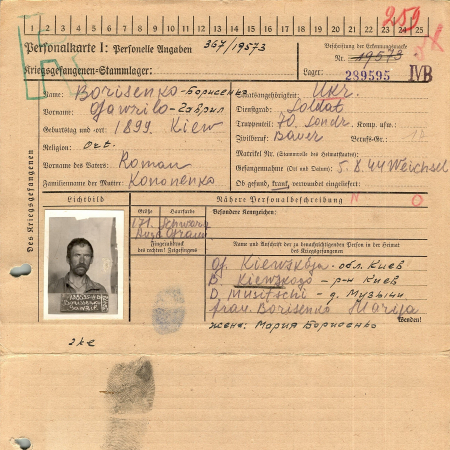 1 2 3 4 5 6 7 8 9 10 11 12 13 14 15 16 17 18 19 20 21 22 23 24 25
259
Personalkarte I: Personelle Angaben 367/19573
Beschriftung der Erkennungsmarke
Nr. 19573
Kriegsgefangenen-Stammlager:
Lager: 289595 IVB
Des Kriegsgefangenen
Name: Borisenko-Борисенко
Vorname: Gawrilo-Гаврил
Geburtstag und -ort: 1899. Kiew
Religion: Ort.
Vorname des Vaters: Roman
Familienname der Mutter: Kononenko
Staatsangehörigkeit: Ukr.
Dienstgrad: Soldat
Truppenteil: 70. Komp. usw.:
Zivilberuf: Bauer Beruf-Gr.:
Matrikel Nr. (Stammrolle des Heimatstaates):
Gefangennahme (Ort und Datum): 5.8.44 Weichsel
Ob gesund, krank, verwundet eingeliefert:
Lichtbild
Nähere Personalbeschreibung
Größe Haarfarbe Besondere Kennzeichen:
171. Schwarz
Fingerabdruck
des rechten! Zeigefingers
Name und Anschrift der zu benachrichtigenden Person in der Heimat
des Kriegsgefangenen
Kiewskaja - обл. Киев
Kiewskogo - р-н Киев
D. Musitschi - д. Музычи
frau Borisenko Marija
Wenden!
жена: Мария Борисенко